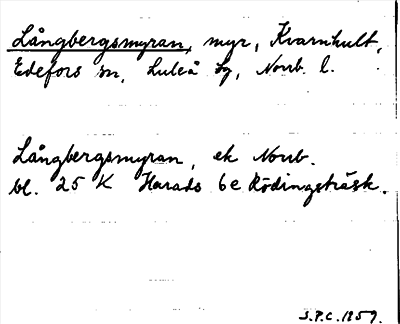 Långbergsmyran, myr, Kvarnhult,
Edefors sn, Luleå lg, Norrb. l.
Långbergsmyran, ek Norrb.
bl. 25 K Harads 6e Rödingsträsk.
S.P.C. 1859.